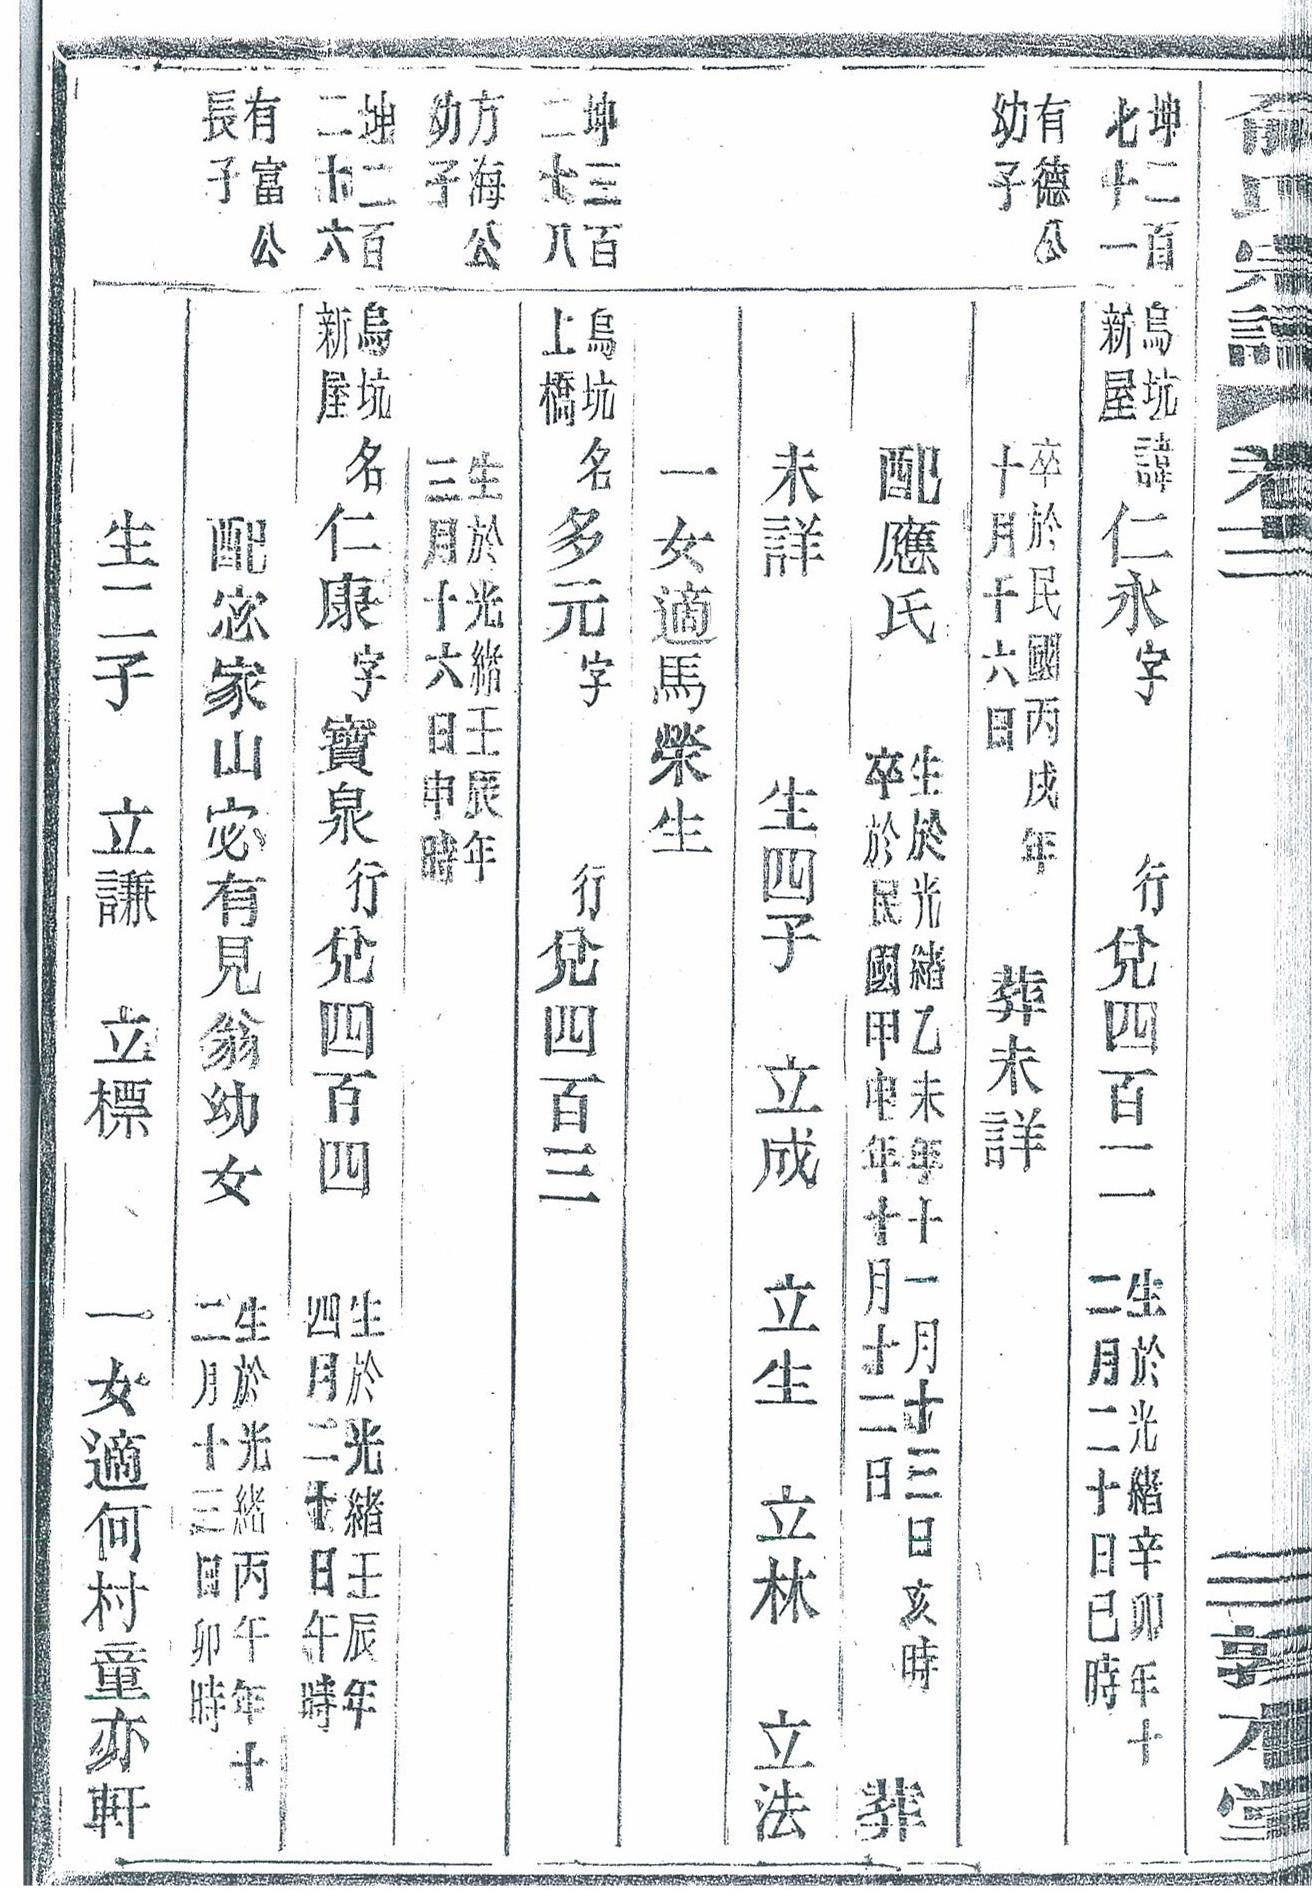 俞氏宗譜 卷三 敦本堂
坤二百
七十一
有德公
幼子
烏坑
新屋
諱仁永字 行兌四百二
生於光緒辛卯年十
二月二十日巳時
卒於民國丙戌年
十月十六日
葬未詳
配應氏
生於光緒乙未年十一月十三日亥時
卒於民國甲申年十月十二日
葬
未詳 生四子 立成 立生 立林 立法
一女適馬榮生
坤三百
二十八
方海公
幼子
烏坑
上橋
名多元字 行兌四百三
生於光緒壬辰年
三月十六日申時
坤二百
二十六
有富公
長子
烏坑
新屋
名仁康字寶泉行兌四百四
生於光緒壬辰年
四月二十日午時
配宓家山宓有見翁幼女
生於光緒丙午年十
二月十三日卯時
生二子 立謙 立標 一女適何村童亦軒